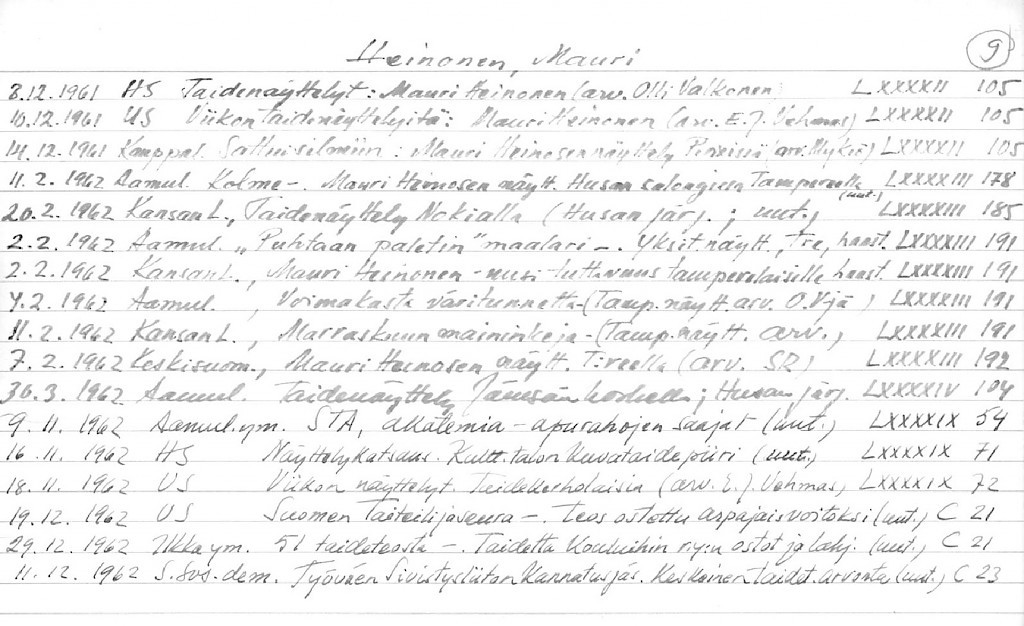 9
Heinonen, Mauri
3.12.1961 HS Taidenäyttelyt: Mauri Heinonen (arv. Olli Valkonen) LXXXXII 105
10.12.1961 US Viikon taidenäyttelyitä: Mauri Heinonen (arv. E.J. Vehmas) LXXXXII 105
14.12.1961 Kauppal. Sattui silmiin: Mauri Heinosen näyttely Pinxissä (arv. LXXXXII 105
11.2.1962 Aamul. Kolme -. Mauri Heinosen näytt. Husan salongissa Tampereella (uut.) LXXXXIII 178
20.2.1962 Kansan L., Taidenäyttely Nokialla (Husan järj.; uut.) LXXXXIII 185
2.2.1962 Aamul. "Puhtaan paletin" maalari -. Yksit.näytt., Tre, haast. LXXXXIII 191
2.2.1962 Kansan L., Mauri Heinonen - uusi tuttavuus tamperelaisille haast. LXXXXIII 191
4.2.1962 Aamul., Voimakasta väritunnetta - (Tamp.näytt. arv. O.Vjä) LXXXXIII 191
11.2.1962 Kansan L., Marraskuun maininkeja - (Tamp.näytt. arv.) LXXXXIII 191
7.2.1962 Keskisuom., Mauri Heinosen näytt. T:reella (arv. SR) LXXXXIII 192
30.3.1962 Aamul. Taidenäyttely Jämsänkoskella; Husan järj. LXXXXIV 104
9.11.1962 Aamul. ym. STA, akatemia - apurahojen saajat (uut.) LXXXXIX 54
16.11.1962 HS Näyttelykatsaus. Kultt.talon Kuvataidepiiri (uut.) LXXXXIX 71
18.11.1962 US Viikon näyttelyt. Taidekerholaisia (arv. E.J. Vehmas) LXXXXIX 72
19.12.1962 US Suomen Taiteilijaseura -. Teos ostettu arpajaisvoitoksi (uut.) C 21
29.12.1962 Ilkka ym. 51 taideteosta -. Taidetta Kouluihin r.y:n ostot ja lahj. (uut.) C 21
11.12.1962 S.Sos.dem. Työväen Sivistysliiton Kannatusjäs. Keskeinen taidet. arvonta (uut.) C 23